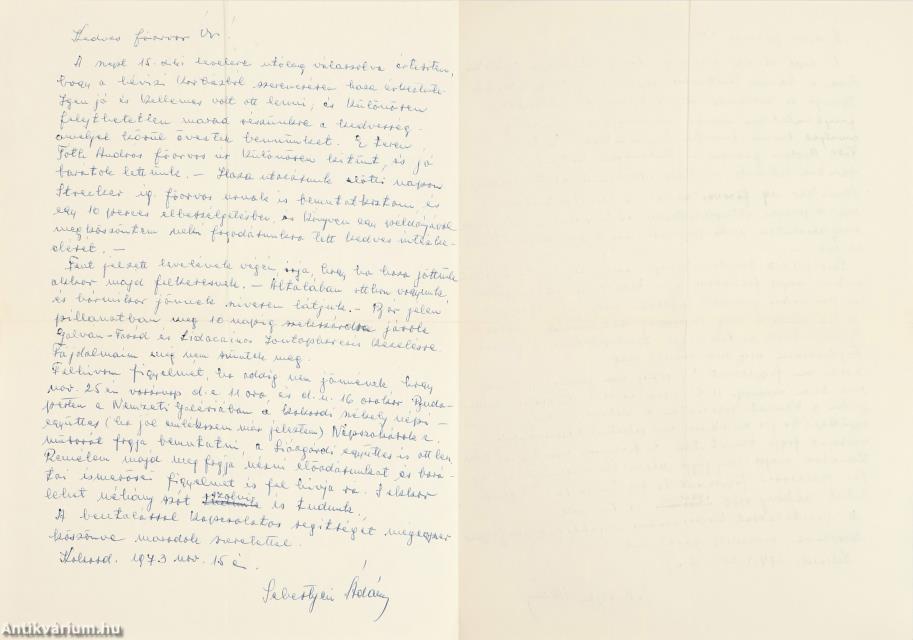 Kedves főorvos Úr!
A szept 15.-diki levelére utólag válaszolva értesítem,
hogy a hévizi kórházból szerencsésen haza érkeztünk.
Igen jó és kellemes volt ott lenni, és különösen
felejthetetlen marad részünkre a kedvesség
amelyel körül övezték bennünket. E téren
Tóth András főorvos úr különösen kitünt, és jó
barátok lettünk. — Haza utazásunk előtti napon
Strecker ig. főorvos úrnak is bemutatkoztam, és
egy 10 perces elbeszélgetésben, és könyvem egy példányával
megköszöntem neki fogadásunkra tett kedves intézke-
dését. —
Fent jelzett levelének végén írja, hogy ha haza jöttünk
akkor majd felkeresnek. — Általában otthon vagyunk,
és bármikor jönnek szivesen látjuk. — Bár jelen
pillanatban még 10 napig szekszárdra járok
Galván-Farád és Lidocainos Iontophoresis kezelésre.
Fájdalmaim még nem szüntek meg.
Felhivom figyelmét, ha addig nem jönnének hogy
nov. 25 én vasárnap d.e 11 óra, és d.u. 16 órakor Buda-
pesten a Nemzeti Galériában a kakasdi székely népi-
együttes (ha jól emlékszem már jeleztem) Népszokások c.
műsorát fogja bemutatni, a Sióagárdi együttes is ott lesz.
Remélem majd meg fogja nézni előadásunkat és bará-
tai ismerősei figyelmét is fel hivja rá. Talakkor
lehet néhány szót szólni is tudunk.
A beutalással kapcsolatos segitségét mégegyszer
köszönve maradok szeretettel.
Kakasd. 1973 nov. 15 én.
Sebestyén Ádám
Antikvárium.hu